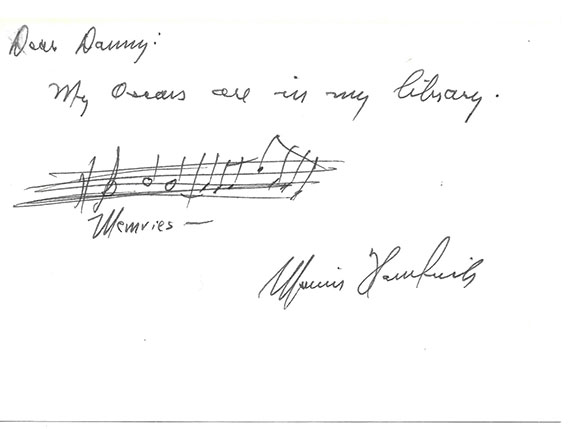 Dear Danny:
My Oscars are in my library.
Memories —
Marvin Hamlisch